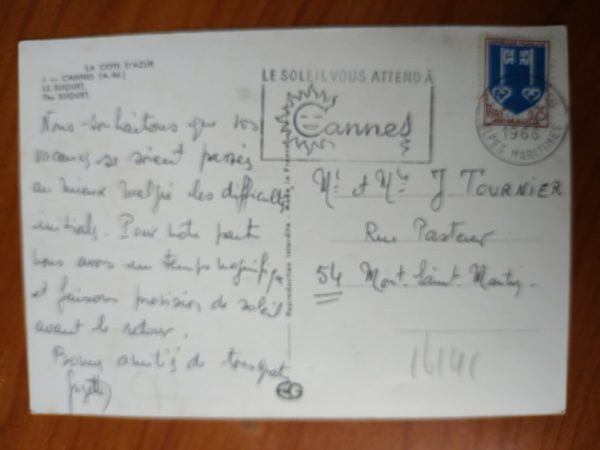 LA COTE D'AZUR
1 — CANNES (A.-M.)
LE SUQUET.
The SUQUET.
Nous souhaitons que vos
vacances se soient passées
au mieux malgré des difficultés
initiales. Pour notre part
nous avons un temps magnifique
et faisons provision de soleil
avant le retour.
Bonnes amitiés de tous
Reproduction interdite
LE SOLEIL VOUS ATTEND À
Cannes
REPUBLIQUE FRANÇAISE
0,25
1966
ALPES MARITIMES
Mr et Mme J TOURNIER
Rue Pasteur
54 Mont-Saint-Martin.